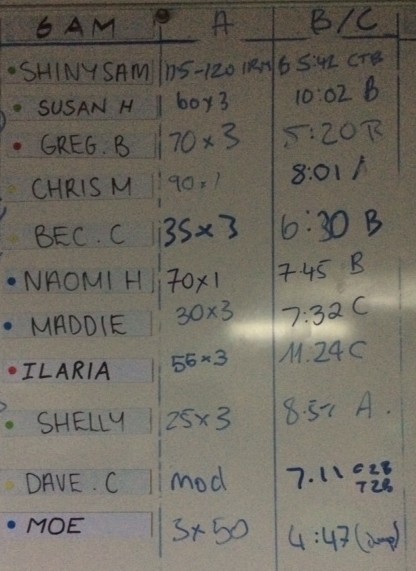 6 AM A B/C
SHINYSAM 115-120 1RM 5:42 CTB
SUSAN H 60x3 10:02 B
GREG. B 70x3 5:20 R
CHRIS M 90x1 8:01 A
BEC. C 35x3 6:30 B
NAOMI H 70x1 7.45 B
MADDIE 30x3 7:32 C
ILARIA 55x3 11.24 C
SHELLY 25x3 A.
DAVE. C Mod 7.11 C2B T2B
MOE 3x50 4:47